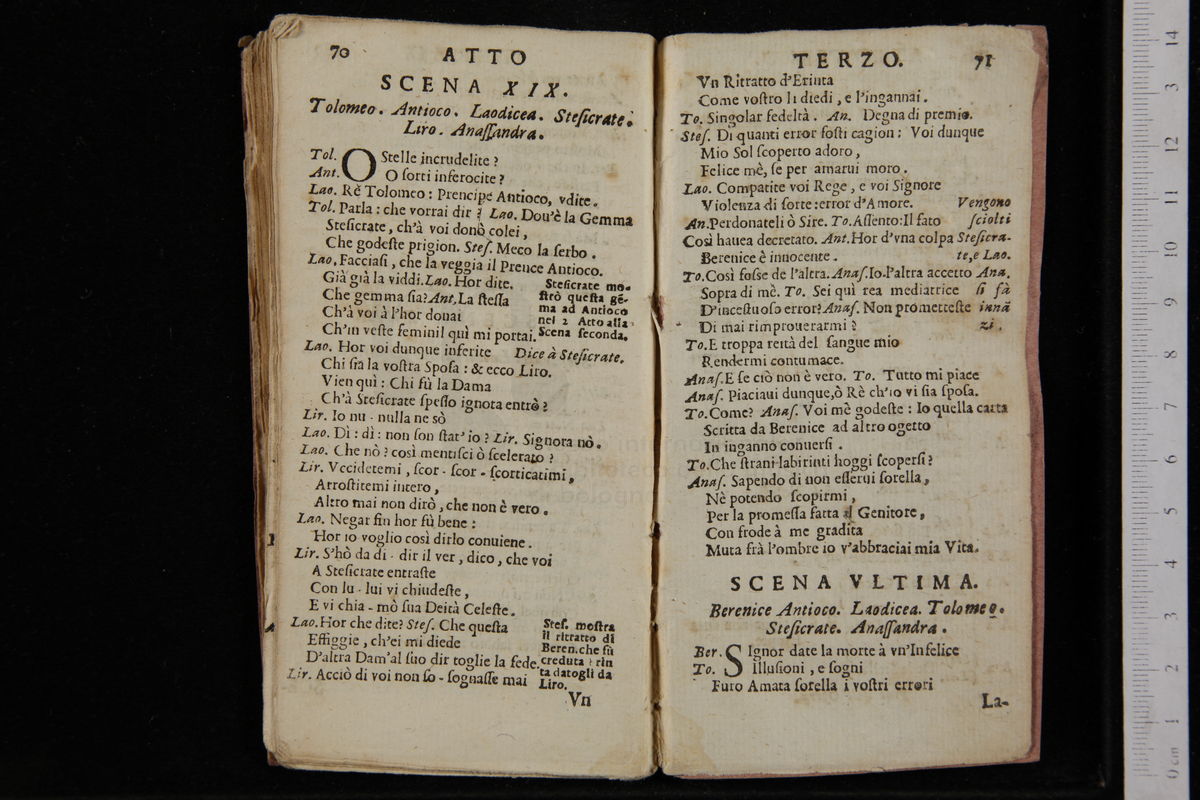 70 ATTO
SCENA XIX.
Tolomeo. Antioco. Laodicea. Steſicrate.
Liro. Anaſſandra.
Tol. O Stelle incrudelite?
Ant. O ſorti inferocite?
Lao. Rè Tolomeo: Prencipe Antioco, vdite.
Tol. Parla: che vorrai dir? Lao. Dou'è la Gemma
Steſicrate, ch'à voi donò colei,
Che godeſte prigion. Steſ. Meco la ſerbo.
Lao. Facciaſi, che la veggia il Prence Antioco.
Già già la viddi. Lao. Hor dite.
Che gemma ſia? Ant. La ſteſſa
Ch'à voi à l'hor donai
Ch'in veſte feminil quì mi portai.
Steſicrate mo-
ſtrò queſta gē-
ma ad Antioco
nel 2 Atto alla
Scena ſeconda.
Lao. Hor voi dunque inferite Dice à Steſicrate.
Chi ſia la voſtra Spoſa: & ecco Liro.
Vien quì: Chi fù la Dama
Ch'à Steſicrate ſpeſſo ignota entrò?
Lir. Io nu - nulla ne sò
Lao. Dì: dì: non ſon ſtat'io? Lir. Signora nò.
Lao. Che nò? così mentiſci ò ſcelerato?
Lir. Vccidetemi, ſcor - ſcor - ſcorticatimi,
Arroſtitemi intero,
Altro mai non dirò, che non è vero.
Lao. Negar fin hor fù bene:
Hor io voglio così dirlo conuiene.
Lir. S'hò da di - dir il ver, dico, che voi
A Steſicrate entraſte
Con lu - lui vi chiudeſte,
E vi chia - mò ſua Deità Celeſte.
Lao. Hor che dite? Steſ. Che queſta
Effiggie, ch'ei mi diede
D'altra Dam'al ſuo dir toglie la fede.
Lir. Acciò di voi non ſo - ſognaſſe mai
Steſ. moſtra
il ritratto di
Beren. che fù
creduta Erin
ta datogli da
Liro.
Vn
TERZO. 71
Vn Ritratto d'Erinta
Come voſtro li diedi, e l'ingannai.
To. Singolar fedeltà. An. Degna di premio.
Steſ. Di quanti error foſti cagion: Voi dunque
Mio Sol ſcoperto adoro,
Felice mè, ſe per amarui moro.
Lao. Compatite voi Rege, e voi Signore
Violenza di ſorte: error d'Amore. Vengono
An. Perdonateli ò Sire. To. Aſſento: Il fato ſciolti
Così hauea decretato. Ant. Hor d'vna colpa Steſicra-
Berenice è innocente. te, e Lao.
To. Così foſse de l'altra. Anaſ. Io l'altra accetto Ana.
Sopra di mè. To. Sei quì rea mediatrice ſi fà
D'inceſtuoſo error? Anaſ. Non prometteſte innā
Di mai rimprouerarmi? zi.
To. E troppa reità del ſangue mio
Rendermi contumace.
Anaſ. E ſe ciò non è vero. To. Tutto mi piace
Anaſ. Piaciaui dunque, ò Rè ch'io vi ſia ſpoſa.
To. Come? Anaſ. Voi mè godeſte: Io quella carta
Scritta da Berenice ad altro ogetto
In inganno conuerſi.
To. Che ſtrani labirinti hoggi ſcoperſi?
Anaſ. Sapendo di non eſſerui ſorella,
Nè potendo ſcopirmi,
Per la promeſſa fatta al Genitore,
Con frode à me gradita
Muta frà l'ombre io v'abbraciai mia Vita.
SCENA VLTIMA.
Berenice Antioco. Laodicea. Tolomeo.
Steſicrate. Anaſſandra.
Ber. SIgnor date la morte à vn'Infelice
To. Illuſioni, e ſogni
Furo Amata ſorella i voſtri errori
La-